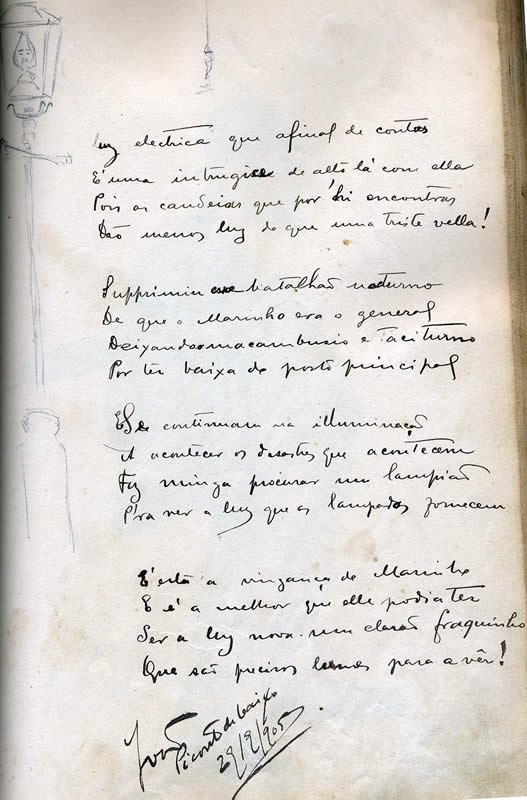 luz electrica que afinal de contas
É uma intrugice de alto lá com ella
Pois as candeias que por 'hi encontras
Dão menos luz do que uma triste vella!
Supprimiu esse batalhão nocturno
De que o Marinho era o general
Deixando-o macambusio e taciturno
Por ter baixa de posto principal
E Se continuam na illuminação
A acontecer os desastres que acontecem
Faz mingua procurar um lampião
P'ra ver a luz que as lampadas fornecem
E' esta a vingança de Marinho
E é a melhor que elle podia ter
Ser a luz nova um clarão fraquinho
Que são precisos lumes para a vêr!
Picanso de baixo
29/9/905